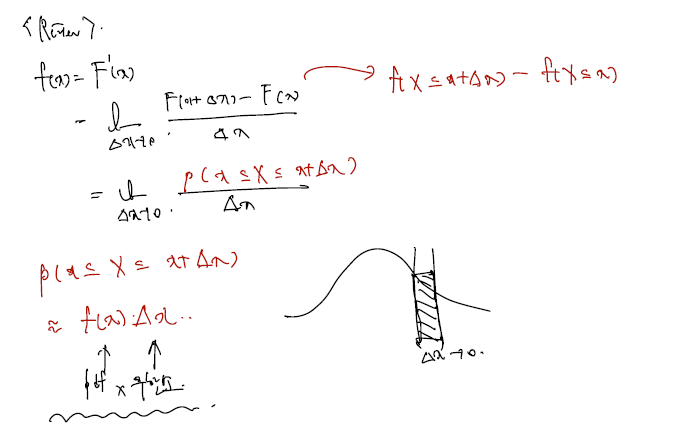 <Review>.
f(x) = F'(x)
= lim Δx→0. F(x+Δx) - F(x) / Δx → P(X ≤ x+Δx) - P(X ≤ x)
= lim Δx→0. P(x ≤ X ≤ x+Δx) / Δx
P(x ≤ X ≤ x+Δx)
≈ f(x)·Δx..
pdf ×
Δx→0.